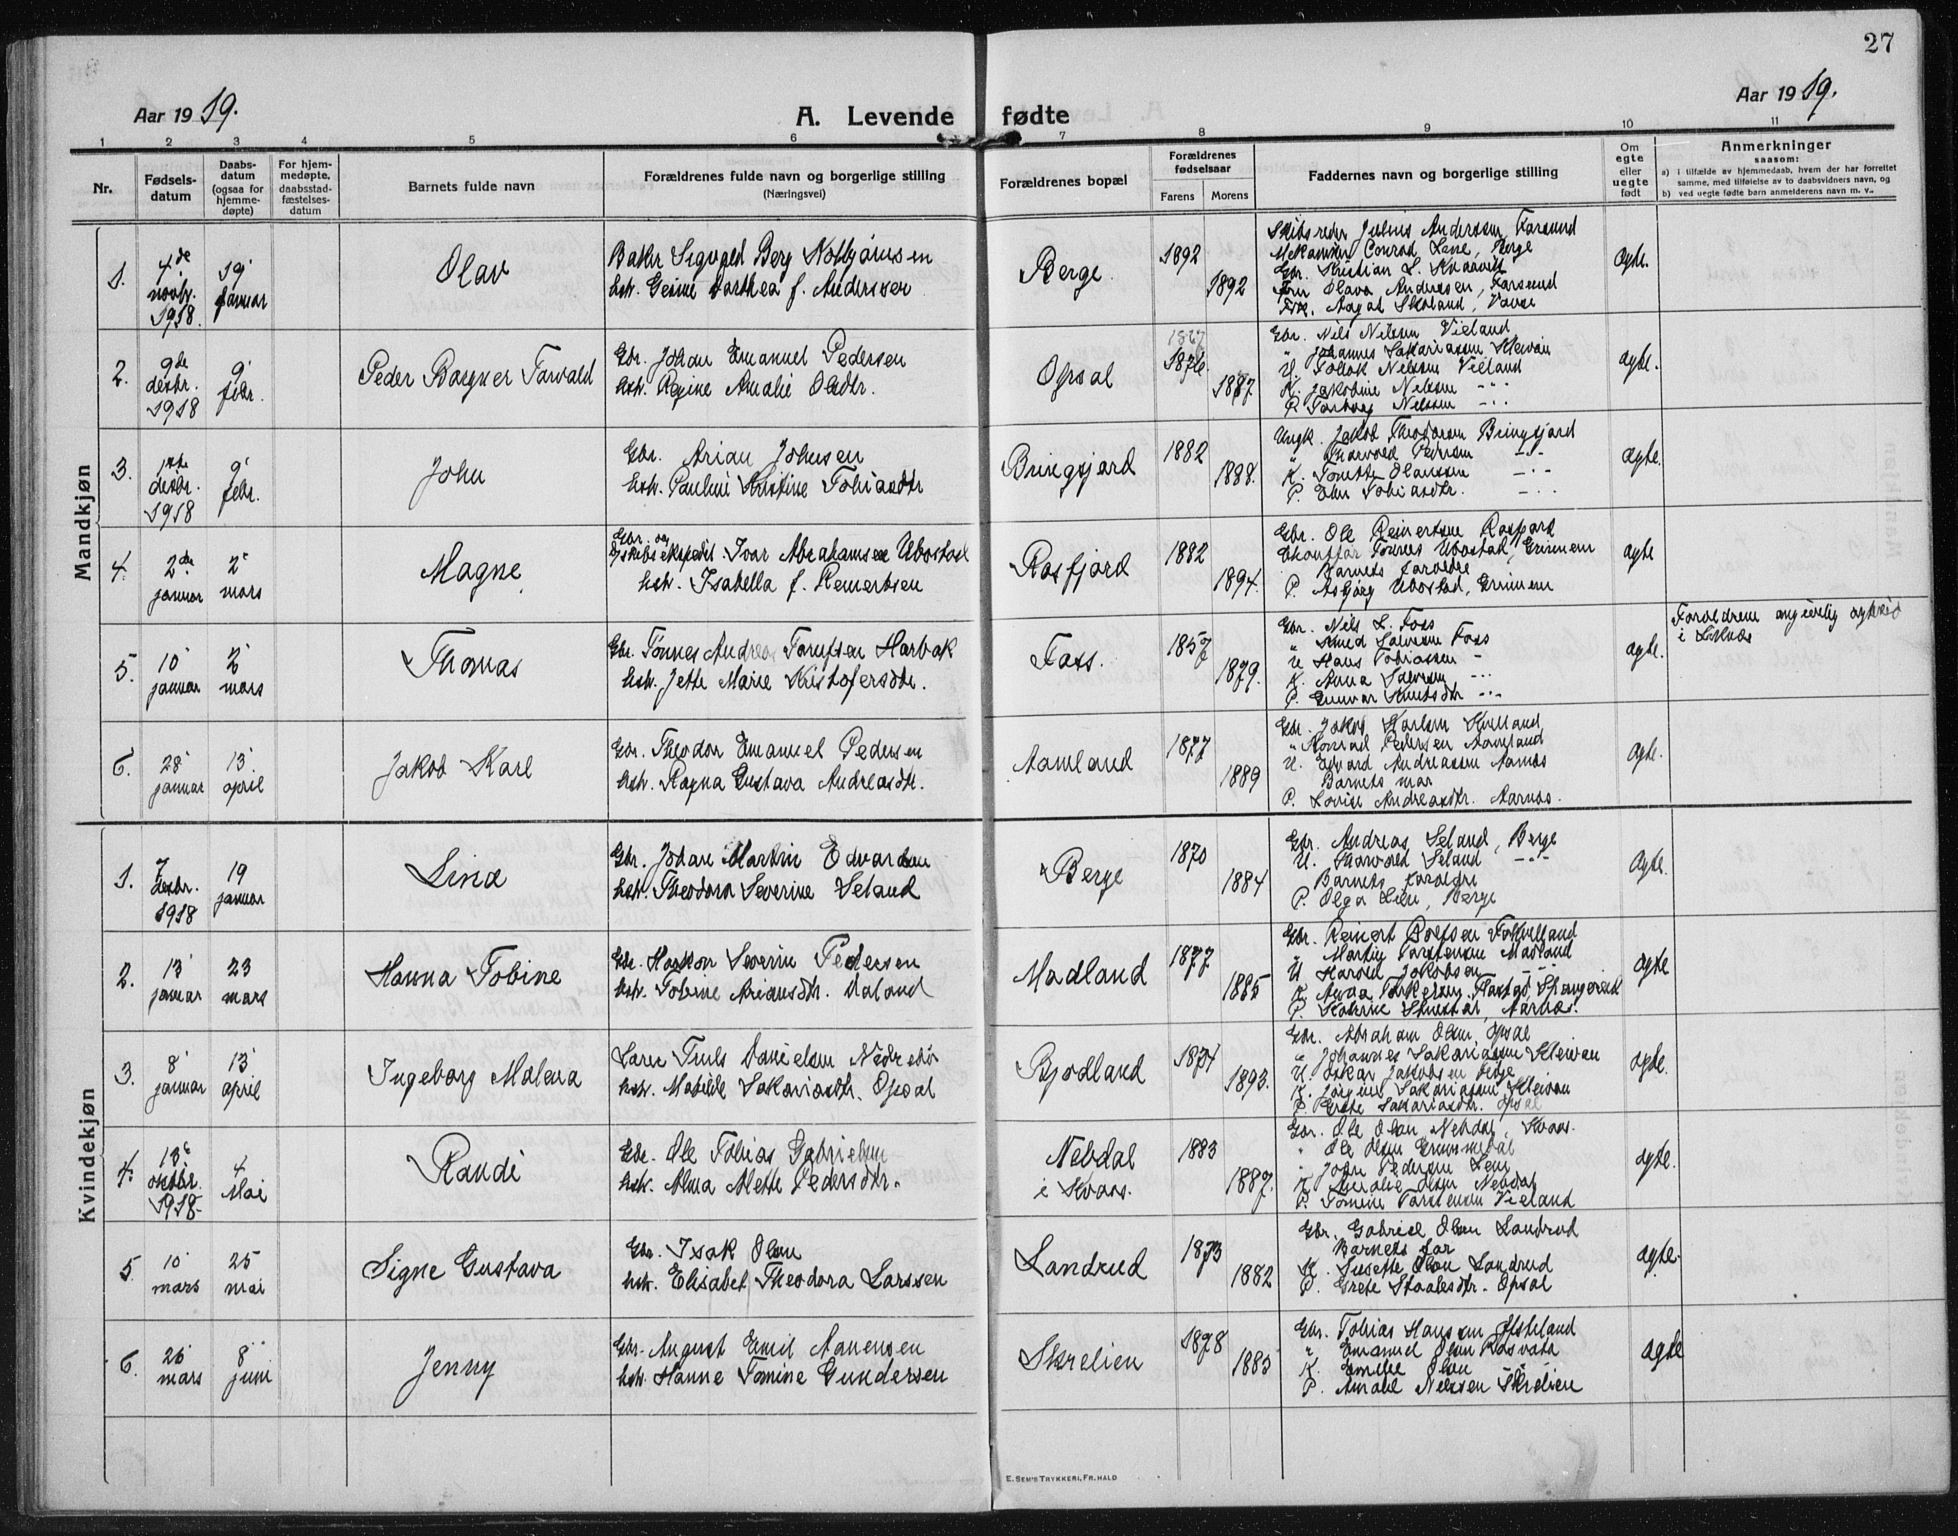 27
Aar 1919.
A. Levende fødte
Aar 1919.
1 2 3 4 5 6 7 8 9 10 11
Nr.
Fødsels-
datum
Daabs-
datum
(ogsaa for
hjemme-
døpte)
For hjem-
medøpte,
daabsstad-
fæstelses-
datum
Barnets fulde navn
Forældrenes fulde navn og borgerlige stilling
(Næringsvei)
Forældrenes bopæl
Forældrenes
fødselsaar
Farens Morens
Faddernes navn og borgerlige stilling
Om
egte
eller
uegte
født
Anmerkninger
saasom:
a) i tilfælde av hjemmedaab, hvem der har forrettet
samme, med tilføielse av to daabsvidners navn, og
b) ved uegte fødte barn anmelderens navn m. v.
Mandkjøn
1. 4de novbr. 1918. 19 januar
Olav
Sigvald Berg
Gesine Dorthea f. Andersen
Berge.
1892 1892
Skibsreder Julius Anderssen, Farsund
Mekaniker Conrad Lene, Berge
Gbr. Kristian L.
Olava Anderssen, Farsund
Skoland, Vanse
ægte.
2. 9de desbr. 1918 9 febr.
Peder Bargner Torvald
Gbr. Johan Emanuel Pedersen
hstr. Regine Amalie Olsdtr.
Opsal
1867
1876. 1887.
Gbr. Nils Nilssen Vieland
" Johannes Sakariassen Kleivan
U. Tollak Nilssen Vieland
K. Jakobine Nilssen -"-
P. Torborg Nilssen -"-
ægte.
3. desbr. 1918 9 febr.
John
Gbr. Arian Johnsen
hstr. Pauline Kristine Tobiasdtr
Bringsjord
1882 1888.
Ungk. Jakob Theodorsen Bringsjord
" Thorvald Pedersen -"-
K. Tonette Olaussen -"-
P. Elen Tobiasdtr. -"-
ægte.
4. 2de januar 2 mars
Magne
Gbr. og
skibsekspedit. Ivar Abrahamsen Ubostad
hstr. Isabella f. Reinertsen
Rosfjord
1882 1894.
Gbr. Ole Reinertsen Rosfjord
Chauffør Tønnes Ubostad, Grimem
Barnets forældre
P. Asbjørg Ubostad, Grimem
ægte
5. 10 januar 2 mars
Thomas
Gbr. Tønnes Andreas Tomessen Harbak
hstr. Jette Marie Kristofersdtr.
Foss.
1857 1879.
Gbr. Nils L. Foss
" Knud Salvesen Foss
U. Hans Tobiassen -"-
K. Anna Salvesen -"-
P. Gunvor Knutsdtr -"-
ægte.
Forældrene angivelig
i
6. 28 januar 13 april
Jakob Karl
Gbr. Theodor Emanuel Pedersen
hstr. Ragna Gustava Andreasdtr.
Aamland
1877 1889
Gbr. Jakob Karlsen Kvelland
" Konrad Pedersen Aamland
U. Edvard Andreassen Aarnæs
Barnets mor
P. Lovise Andreasdtr. Aarnæs.
ægte.
Kvindekjøn
1. 7 desbr. 1918 19 januar
Lina
Gbr. Johan Martin Edvardsen
hstr. Theodora Severine Seland
Berge
1870 1884
Gbr. Andreas Seland, Berge
U. Thorvald Seland -"-
Barnets forældre
P. Olga Lene, Berge
ægte.
2. 13 januar 23 mars
Hanna Tobine
Gbr. Haakon Severin Pedersen
hstr. Tobine Ariansdtr. Daland
Madland
1877 1885
Gbr. Reinert Bertsen Follvilland
" Martin Torstensen Madland
U. Harald Jakobsen -"-
K. Anna Torkelsen
P. Kathrine Aarnæs.
ægte
3. 8 januar 13 april
Ingeborg Malena
Lærer Truls Danielsen Nedrebø
hstr. Matilde Sakariasdtr. Opsal
Bjodland
1874 1893.
Gbr. Abraham Olsen, Opsal
" Johannes Sakariassen Kleivan
U. Oskar Jakobsen
K. Jørgine Sakariassen Kleivan
P. Grete Sakariasdtr. Opsal
ægte.
4. 13 oktbr. 1918 4 Mai
Randi
Gbr. Ole Tobias Gabrielsen
hstr. Alma Alette Pedersdtr.
Nebdal
i Kvaas.
1883 1887.
Gbr. Ole Olsen Nebdal, Kvaas.
" Ole Olsen
" John Pedersen Lene
K. Amalie Olsen Nebdal
P. Tomine Torstensen Vieland
ægte.
5. 10 mars 25 mai
Signe Gustava
Gbr. Isak Olsen
hstr. Elisabet Theodora Larssen
Landrud
1873 1882
Gbr. Gabriel Olsen Landrud
Barnets far
K. Susette Olsen Landrud
P. Grete Staalesdtr. Opsal
ægte.
6. 26 mars 8 juni
Jenny
Gbr. August Emil Aanensen
hstr. Hanne Tomine Gundersen
Skrelien
1878 1883
Gbr. Tobias Hanssen
" Emanuel Olsen Rosvata
K. Emilie Olsen -"-
P. Amalie Nilssen Skrelien
ægte
E. SEM'S TRYKKERI, FR.HALD